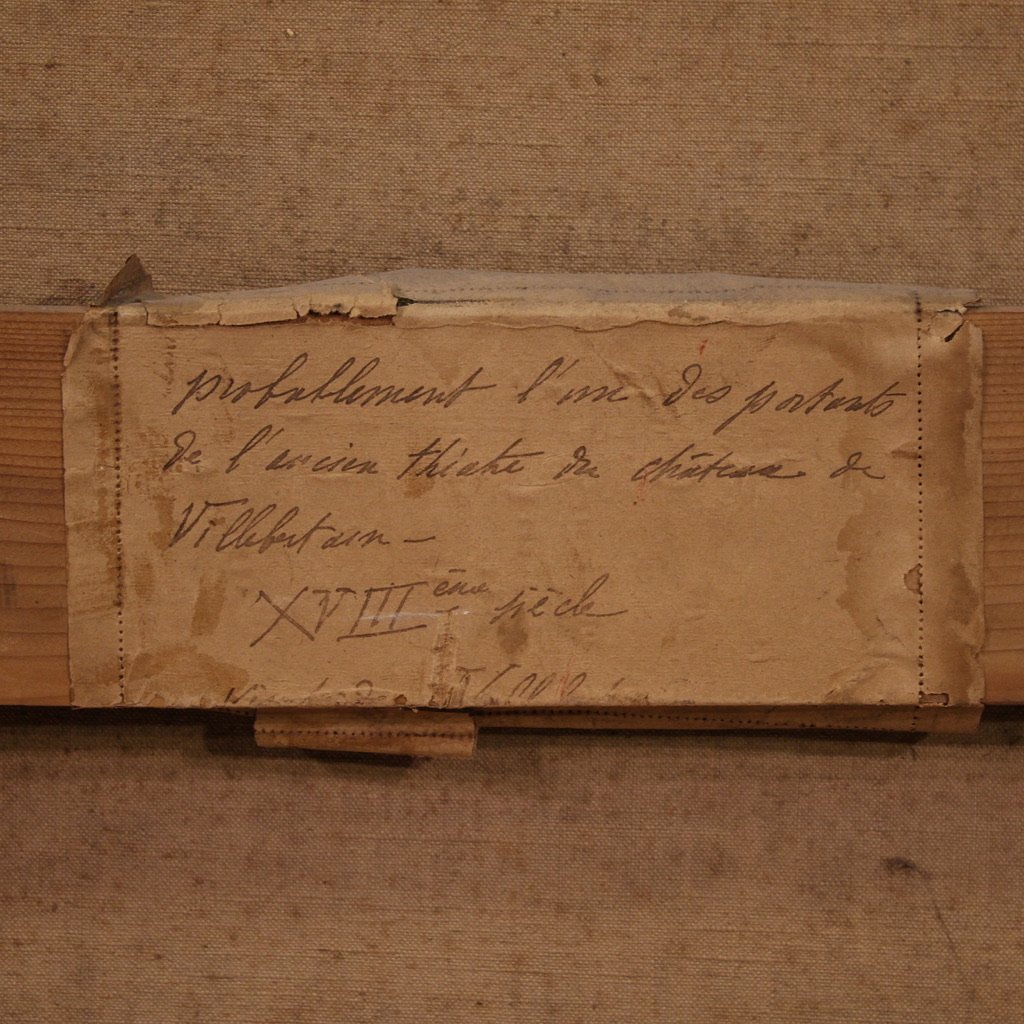 probablement l'un des portants
de l'ancien théâtre du château de
Villebertain –
XVIII ème siècle